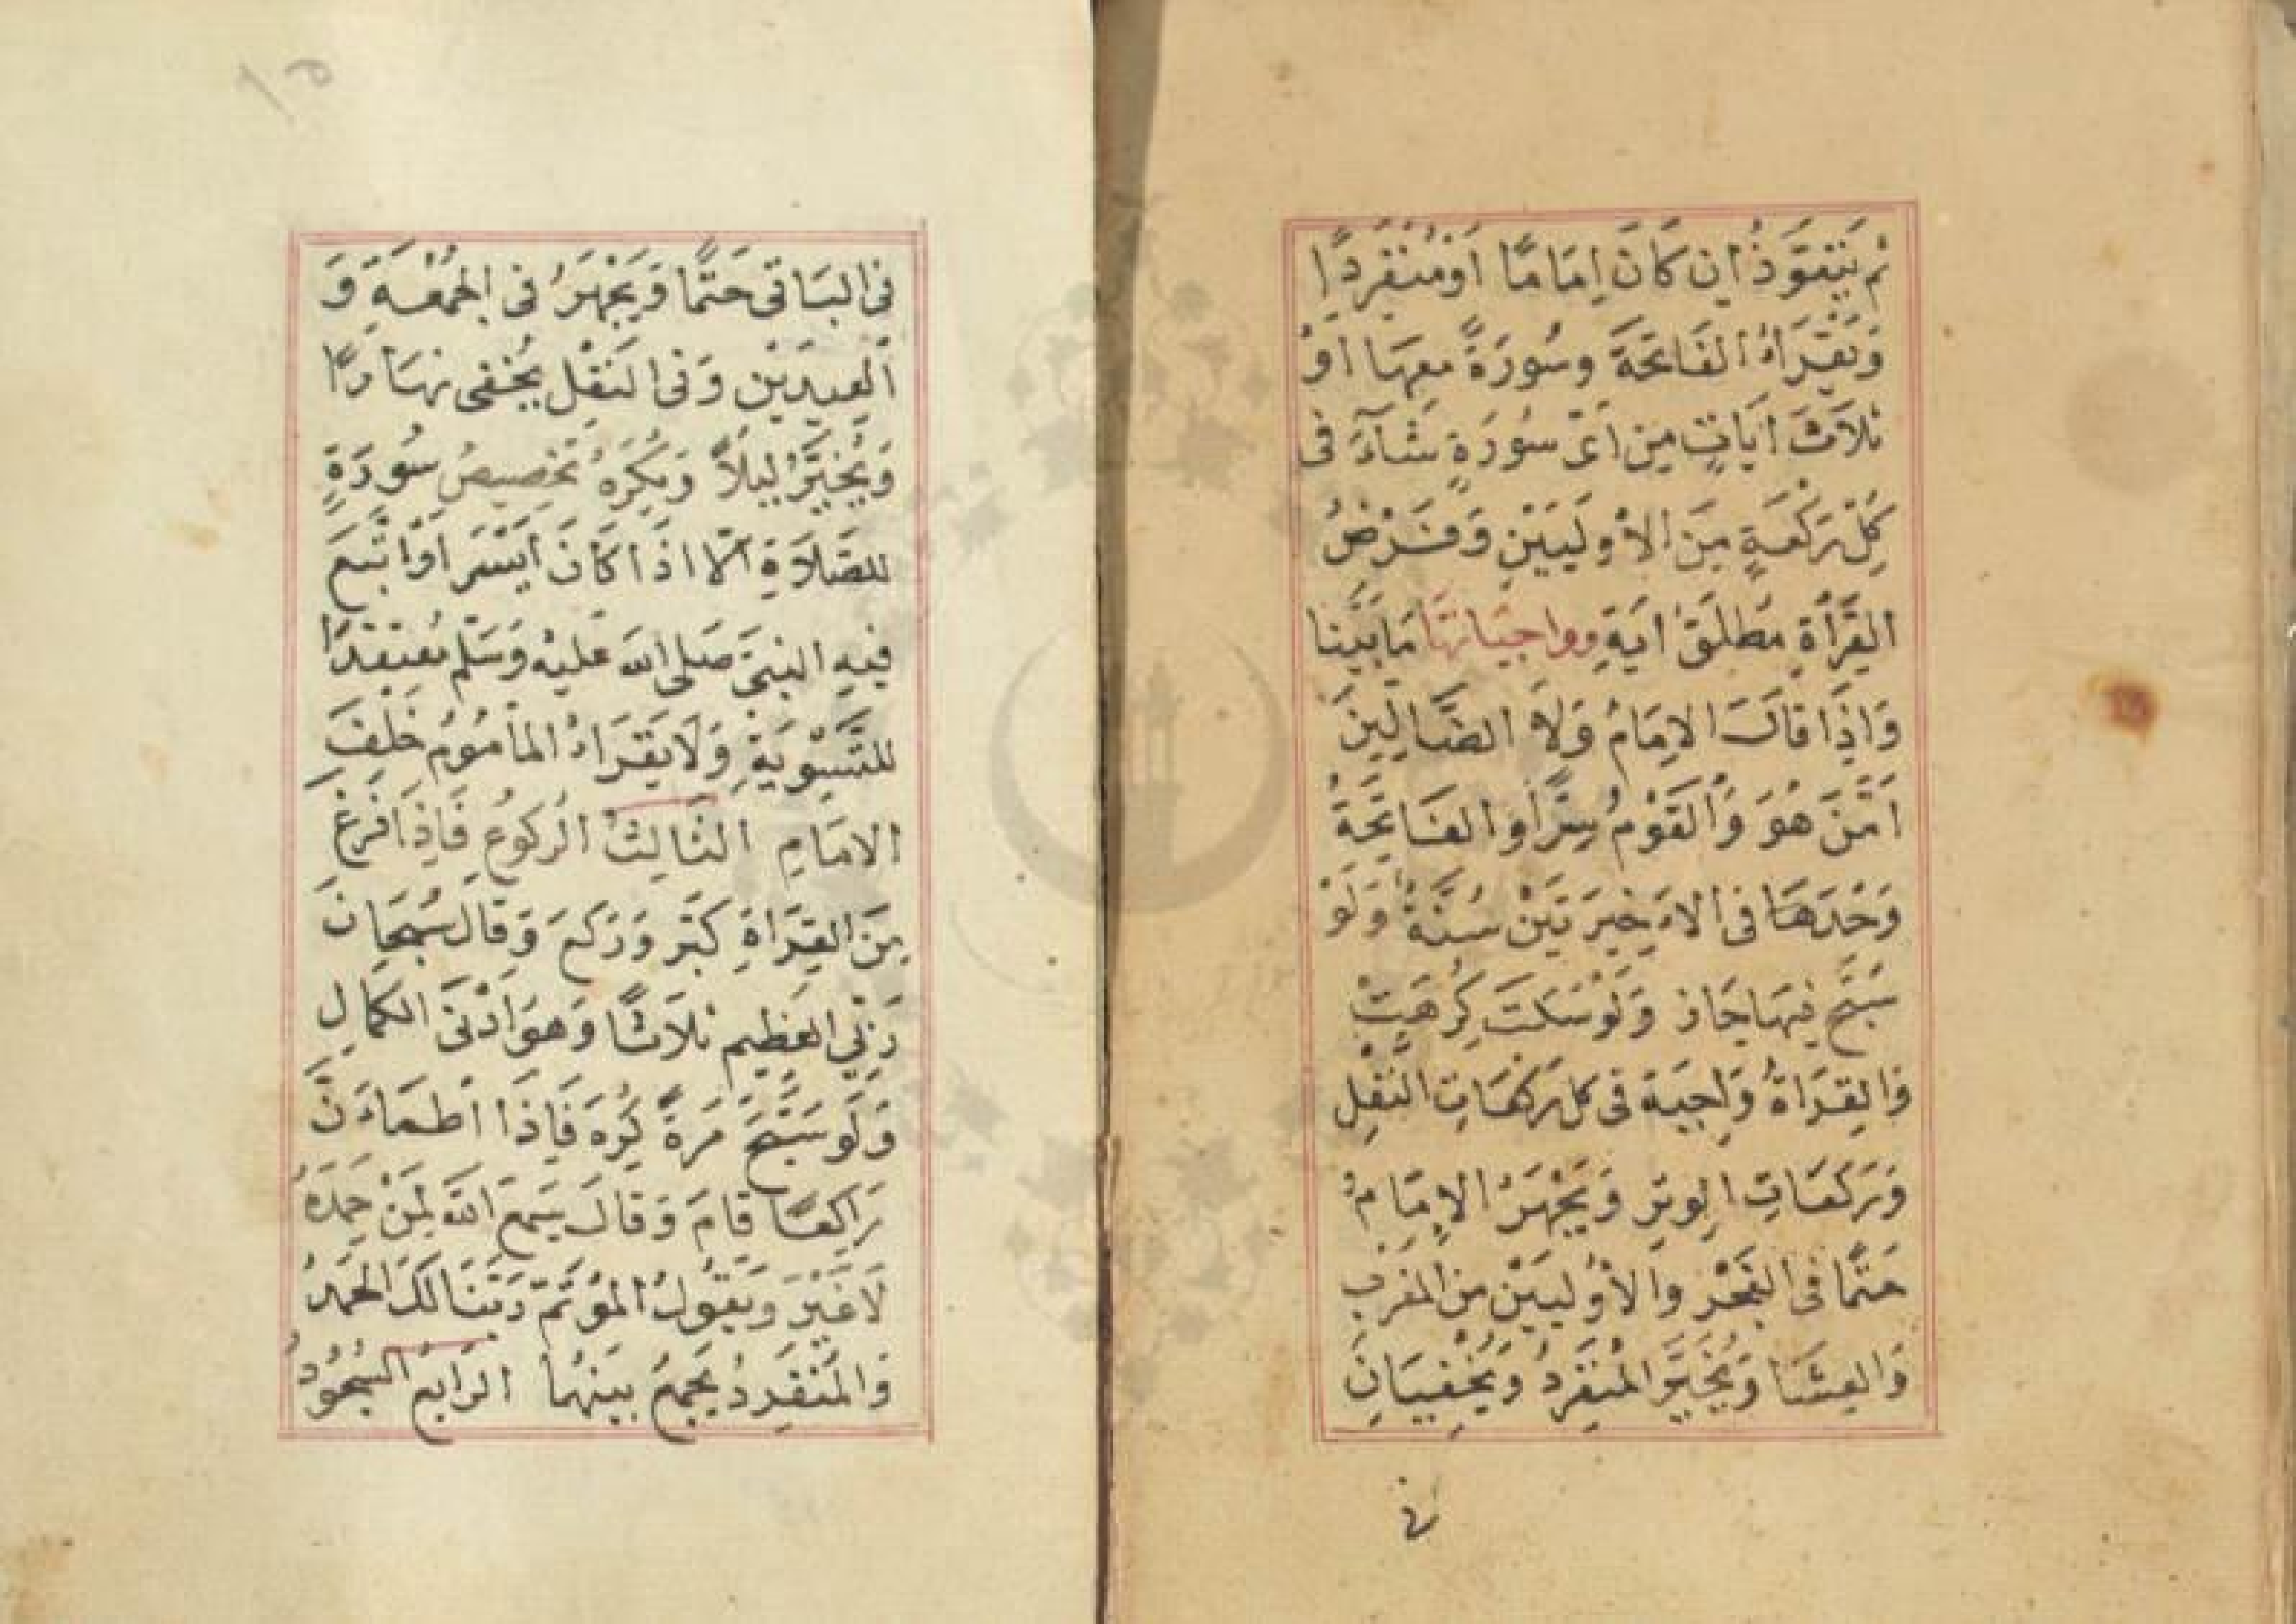 ثُم يَتَعَوَّذُ اِن كَانَ اِمَامًا اَوْمُنْفَرِدًا
وَيَقْرَاءُ الفَاتحَةَ وسُورَةً معهَا اَوْ
ثلاَثَ اٰيَاتٍ مِن اَىّ سُورَةٍ شَآءَ فى
كِلّ رَكْعَةٍ مِنَ الأولَيَيْنِ وَفَرْضُ
القِرَأةِ مطلَقُ ايَةٍ وواجبَاتهَا مَا بَيَّنا
وَاِذَا قَالَ الامَامُ وَلاَ الضَّالّينَ
اَمَّنَ هُوَ وَالقَوْمُ سِرًّا والفَاتحَةُ
وَحْدَهَا فى الاَخيرَتَيْن سُنَّةٌ وَلَوْ
سَبَّح فيهَا جَاز وَلَوْ سَكتَ كِرُهَتْ
وَالقِرَاةُ وَاجِبَة فى كل رَكعَاتِ النَّفِل
وَرَكعَاتِ الوِترِ وَيَجْهَرُ الاِمَامُ
حَتْمًا فى الفَجْرِ وَالأوُليَيْن مِن المغرَب
وَالعِشَا وَيُخَيَّرُ المنفَرِدُ وَيُخْفِيَانِ
فى
فى البَاقى حَتْمًا وَيَجْهَرُ فى الجمُعَةِ وَ
العِيدَيْنِ وَفى النَفْلِ يُخفى نهَارًا
وَيُخيَّرُ ليلاً وَيُكرَهُ تخصِيصُ سُورَةٍ
للصَّلاَةِ اِلّا اذَا كَانَ ايَسَرَ اَوْ اتَّبَعَ
فيهِ النبىَّ صَلى الله عَليهْ وَسَلّم مُعتقدًا
للتَّسْوِيَةِ وَلاَ يَقْرَاءُ المأمُومُ خَلفَ
الامَامِ الثَالِثُ الرُكوُعِ فَاِذَا فَرَغَ
مِنَ القِرَاةِ كبَّر وَرَكعَ وَقالَ سُبحَانَ
رَبّىِ العَظِيم ثلاَثًا وَهوَ اَدْنىَ الكَمالِ
وَلَو سَبَّحَ مَرةً كُرِهَ فَاِذَا اطمَاءَنَّ
رَاكعًا قامَ وَقالَ سَمعَ الله لمَنْ حَمِدَهُ
لاَغَيْرَ وَيَقُولُ المؤتَمّ رَبّنَا لكَ الحَمدُ
وَالمنفَرِدُ يَجمعُ بَينهُمَا الرَابعُ السُجُوُدُ